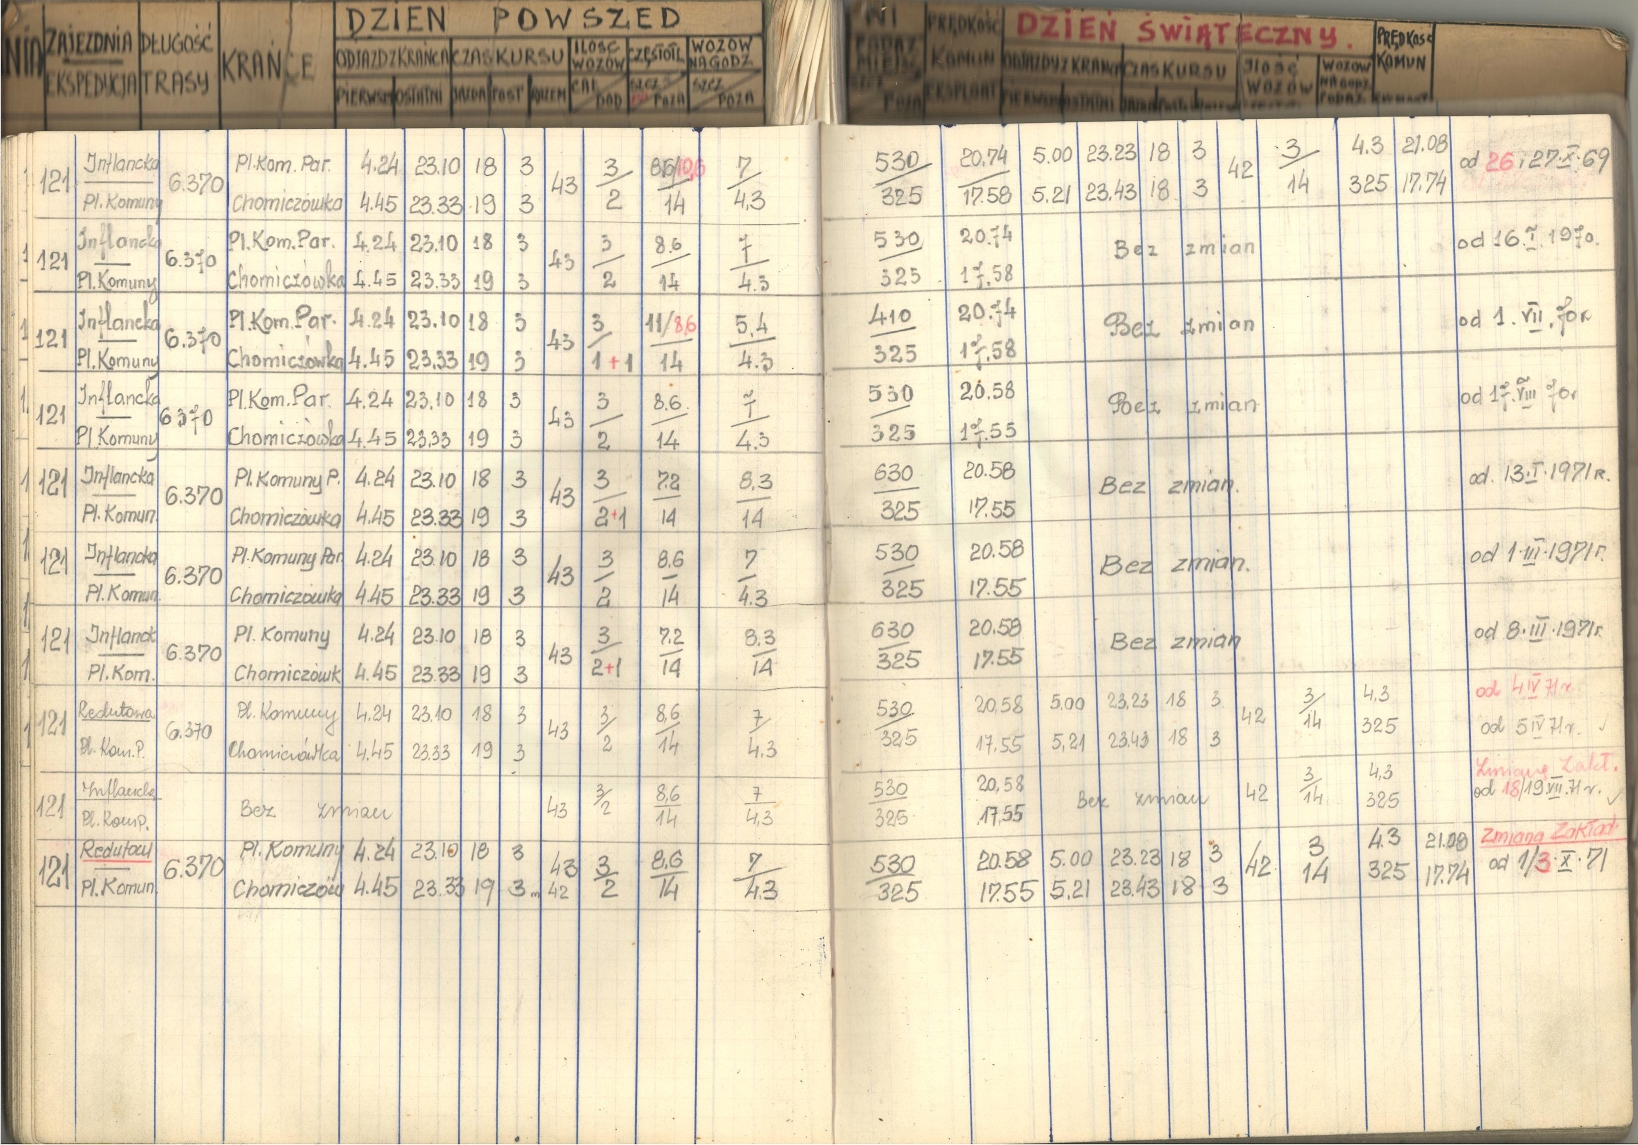 DZIEŃ POWSZED
DZIEŃ ŚWIĄTECZNY.
ZAJEZDNIA DŁUGOŚĆ KRAŃCE ODJAZD Z KRAŃCA CZAS KURSU ILOŚĆ WOZÓW CZĘSTOTL WOZÓW NA GODZ PRĘDKOŚĆ KOMUN ODJAZDY Z KRAŃCA CZAS KURSU ILOŚĆ WOZÓW WOZÓW NA GODZ PRĘDKOŚĆ KOMUN
EKSPEDYCJA TRASY PIERWSZ OSTATNI JAZDA POST RAZEM CAŁ DOD SZCZ POZA SZCZ POZA EKSPLOAT
121 Inflancka 6.370 Pl. Kom. Par. 4.24 23.10 18 3 43 3 8,6/10,6 7 530 20.74 5.00 23.23 18 3 42 3 4.3 21.08 od 26 i 27.X.69
Pl. Komuny Chomiczówka 4.45 23.33 19 3 2 14 4,3 325 17.58 5.21 23.43 18 3 14 325 17.74
121 Inflancka 6.370 Pl. Kom. Par. 4.24 23.10 18 3 43 3 8.6 7 530 20.74 Bez zmian od 16.I.1970.
Pl. Komuny Chomiczówka 4.45 23.33 19 3 2 14 4.3 325 17.58
121 Inflancka 6.370 Pl. Kom. Par. 4.24 23.10 18 3 43 3 11/8,6 5,4 410 20.74 Bez zmian od 1. VII. 70r.
Pl. Komuny Chomiczówka 4.45 23.33 19 3 1+1 14 4.3 325 17.58
121 Inflancka 6370 Pl. Kom. Par. 4.24 23.10 18 3 43 3 8.6. 7 530 20.58 Bez zmian od 17.VIII 70r
Pl. Komuny Chomiczówka 4.45 23.33 19 3 2 14 4.3 325 17.55
121 Inflancka 6.370 Pl. Komuny P. 4.24 23.10 18 3 43 3 7.2 8,3 630 20.58 Bez zmian. od. 13.I.1971r.
Pl. Komun. Chomiczówka 4.45 23.33 19 3 2+1 14 14 325 17.55
121 Inflancka 6.370 Pl. Komuny Par 4.24 23.10 18 3 43 3 8.6 7 530 20.58 Bez zmian. od 1.III.1971r.
Pl. Komun. Chomiczówka 4.45 23.33 19 3 2 14 4.3 325 17.55
121 Inflanck 6.370 Pl. Komuny 4.24 23.10 18 3 43 3 7.2 8.3 630 20.58 Bez zmian od 8.III.1971r.
Pl. Kom. Chomiczówk 4.45 23.33 19 3 2+1 14 14 325 17.55
121 Redutowa 6.370 Pl. Komuny 4.24 23.10 18 3 43 3 8,6 7 530 20,58 5.00 23.23 18 3 42 3 4,3 od 4 IV 71r.
Pl. Kom. P. Chomiczówka 4.45 23.33 19 3 2 14 4,3 325 17,55 5,21 23.43 18 3 14 325 od 5 IV 71r.
Zmiana Zakł.
121 Inflancka Bez zmian 43 3 8,6 7 530 20,58 Bez zmian 42 3 4,3 od 18/19 VII. 71r.
Pl. Kom P. 2 14 4,3 325 17,55 14 325
Zmiana Zakład.
121 Redutow 6.370 Pl. Komuny 4.24 23.10 18 3 43 3 8,6 7 530 20.58 5.00 23.23 18 3 42 3 4.3 21.08 od 1/3.X.71
Pl. Komun. Chomiczów 4.45 23.33 19 3 m 42 2 14 4.3 325 17.55 5,21 23.43 18 3 14 325 17.74